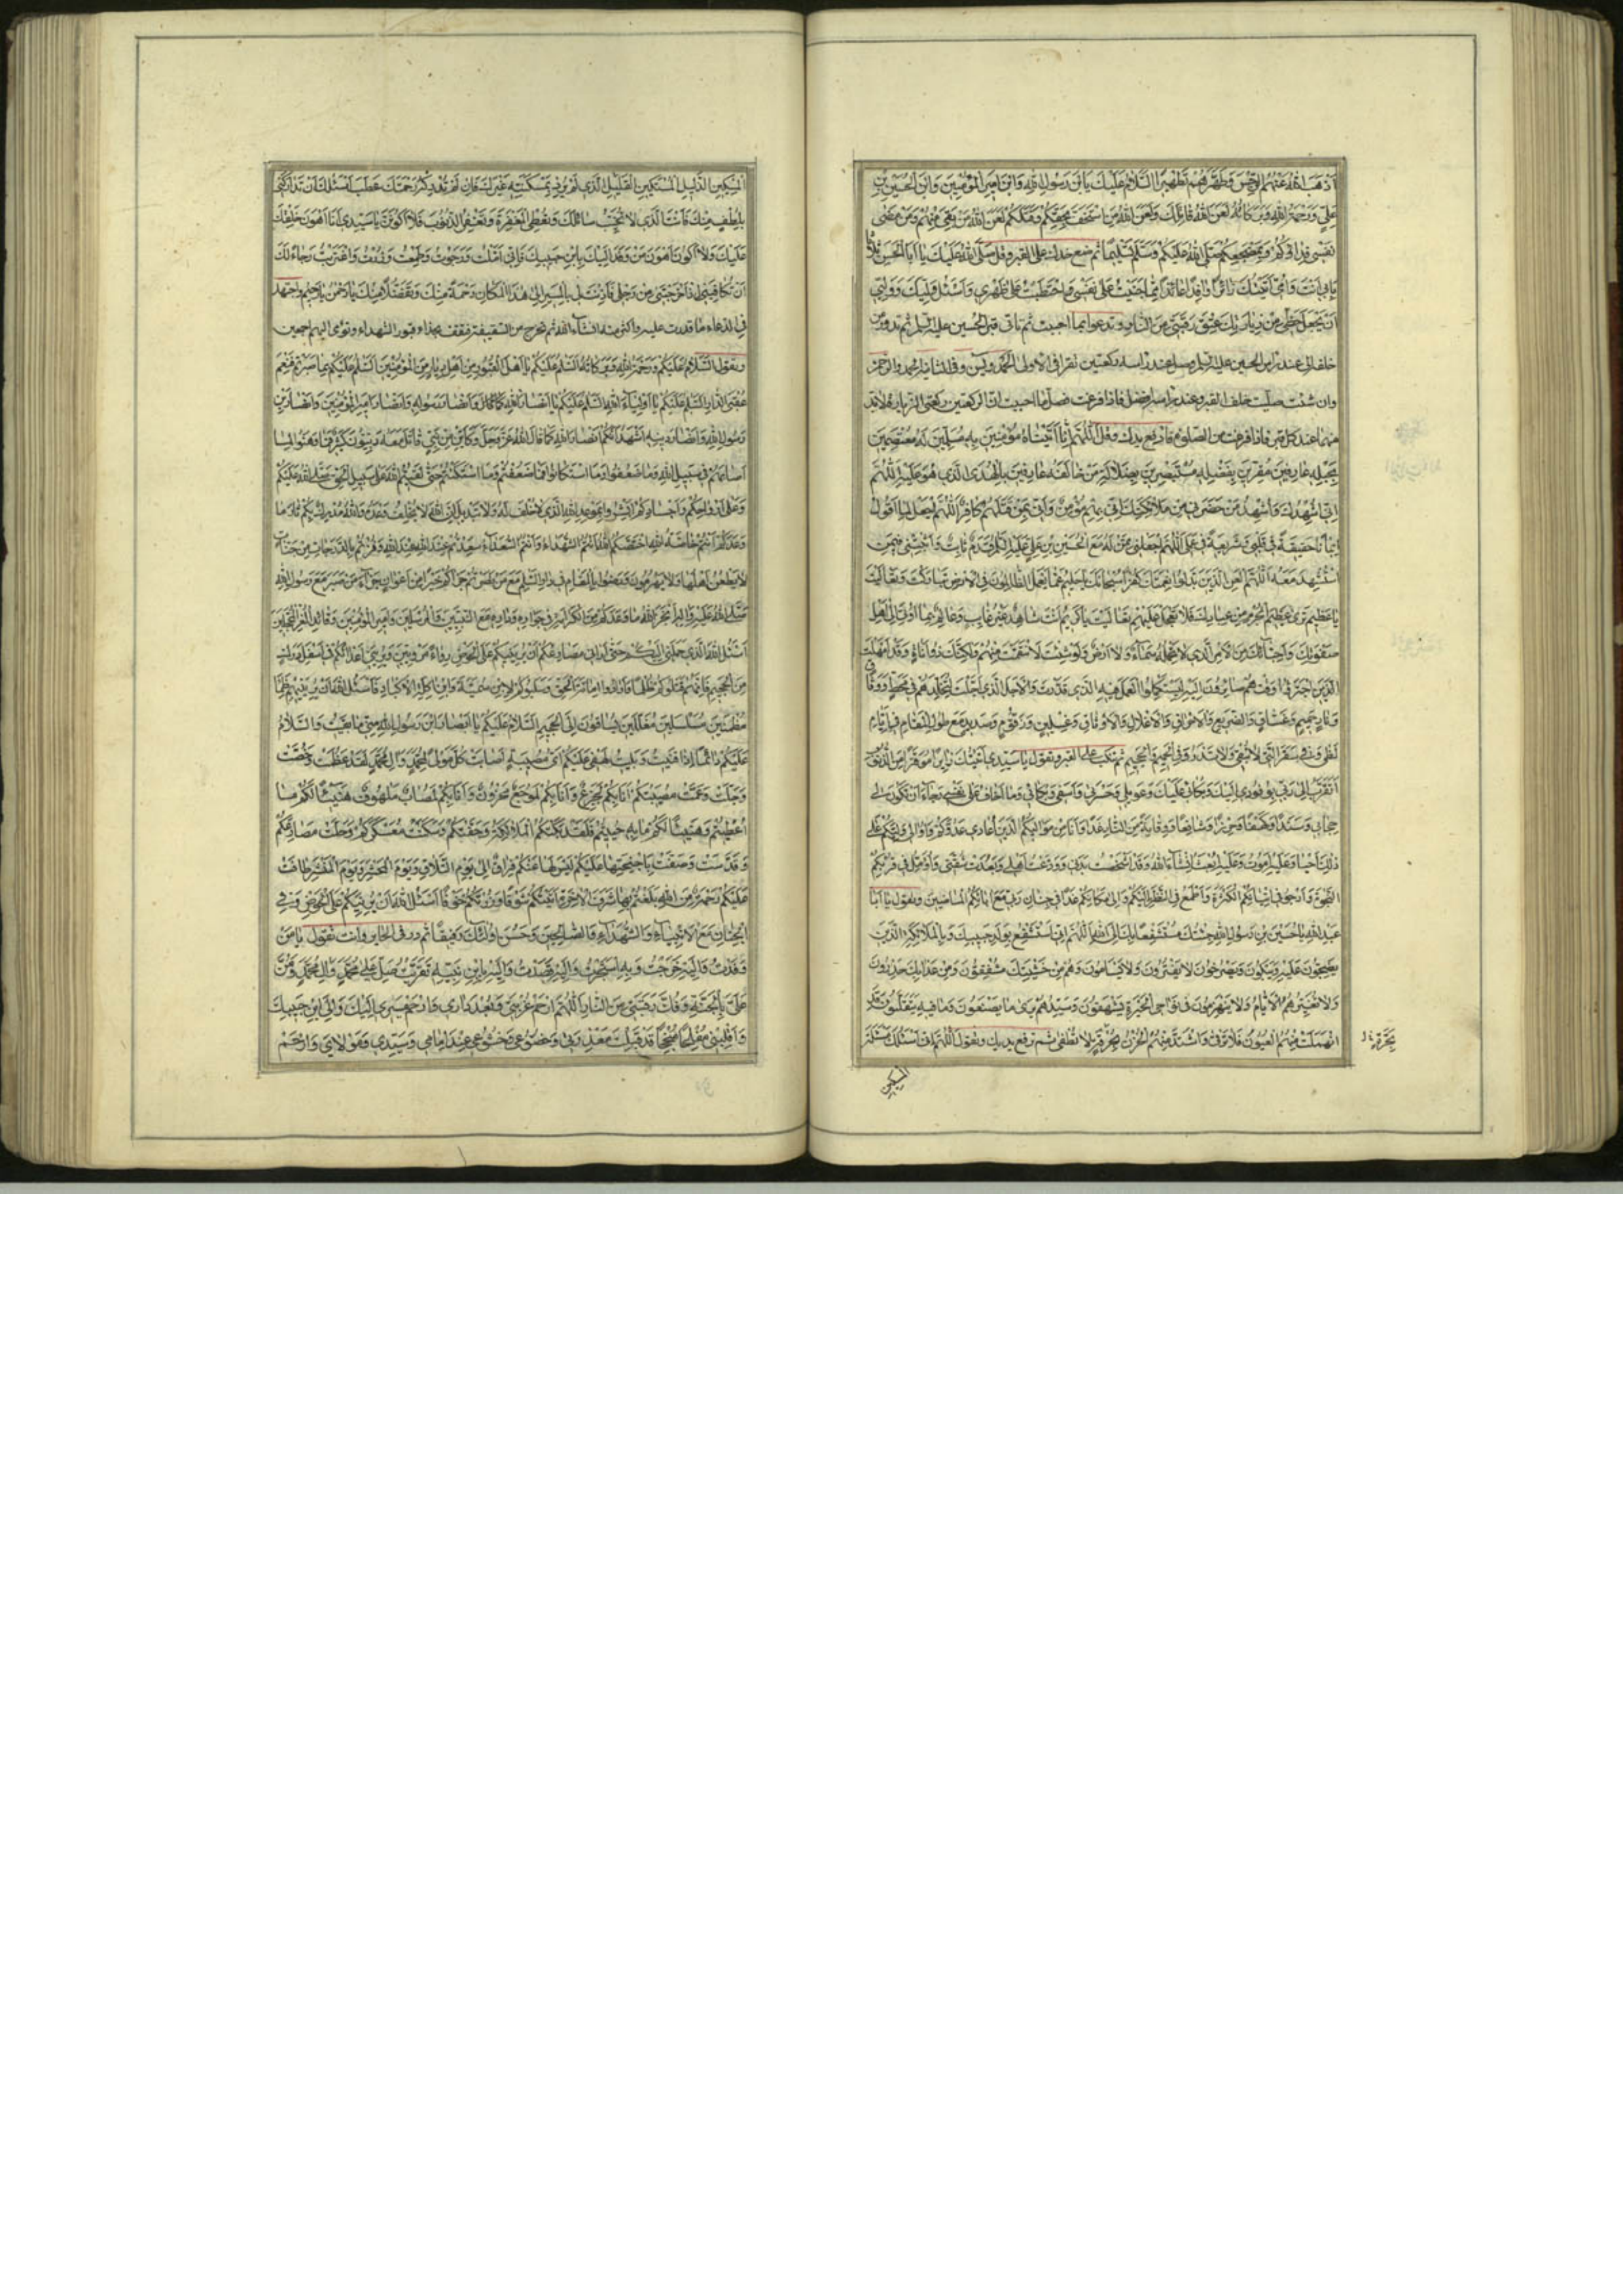 اَذْهَبَ اللهُ عَنْهُمُ الرِّجْسَ وَطَهَّرَهُمْ تَطْهِيرًا اَلسَّلامُ عَلَيْكَ يَا بْنَ رَسُولِ اللهِ وَابْنَ اَمِيرِ الْمُؤْمِنِينَ وَابْنَ الْحُسَيْنِ بْنِ
عَلِيٍّ وَرَحْمَةُ اللهِ وَبَرَكَاتُهُ لَعَنَ اللهُ قَاتِلَكَ وَلَعَنَ اللهُ مَنِ اسْتَخَفَّ بِحَقِّكُمْ وَقَتَلَكُمْ لَعَنَ اللهُ مَنْ بَقِيَ مِنْهُمْ وَمَنْ مَضٰى
نَفْسِي فِدَاؤُكُمْ وَلِمَضْجَعِكُمْ صَلَّى اللهُ عَلَيْكُمْ وَسَلَّمَ تَسْلِيمًا ثم ضع خدك على القبر وقل صَلَّى اللهُ عَلَيْكَ يَا اَبَا الْحَسَنِ ثلاثا
بِاَبِي اَنْتَ وَاُمِّي اَتَيْتُكَ زَائِرًا وَافِدًا عَائِذًا مِمَّا جَنَيْتُ عَلٰى نَفْسِي وَاحْتَطَبْتُ عَلٰى ظَهْرِي وَاَسْئَلُ وَلِيَّكَ وَوَلِيِّي
اَنْ يَجْعَلَ حَظِّي مِنْ زِيَارَتِكَ عِتْقَ رَقَبَتِي مِنَ النَّارِ وتدعو بما احببت ثم تاتى قبر الحسين عليه السلم ثم تدور من
خلفه الى عند راس الحسين عليه السلم وصل عند راسه ركعتين تقرا فى الاولى الحمد ويس وفى الثانية الحمد والرحمن
وان شئت صليت خلف القبر وعند راسه افضل فاذا فرغت فصل ما احببت الا ان ركعتى الزيارة لا بد
منهما عند كل قبر فاذا فرغت من الصلوة فارفع يديك وقل اَللّٰهُمَّ اِنَّا اَتَيْنَاهُ مُؤْمِنِينَ بِهِ مُسَلِّمِينَ لَهُ مُعْتَصِمِينَ
بِحَبْلِهِ عَارِفِينَ بِحَقِّهِ مُقِرِّينَ بِفَضْلِهِ مُسْتَبْصِرِينَ بِضَلالَةِ مَنْ خَالَفَهُ عَارِفِينَ بِالْهُدَى الَّذِي هُوَ عَلَيْهِ اَللّٰهُمَّ
اِنِّي اُشْهِدُكَ وَاُشْهِدُ مَنْ حَضَرَنِي مِنْ مَلائِكَتِكَ اَنِّي بِهِمْ مُؤْمِنٌ وَاَنِّي بِمَنْ قَتَلَهُمْ كَافِرٌ اَللّٰهُمَّ اجْعَلْ لِمَا اَقُولُ
بِلِسَانِي حَقِيقَةً فِي قَلْبِي وَشَرِيعَةً فِي عَمَلِي اَللّٰهُمَّ اجْعَلْنِي مِمَّنْ لَهُ مَعَ الْحُسَيْنِ بْنِ عَلِيٍّ عَلَيْهِ السَّلَمُ قَدَمٌ ثَابِتٌ وَاَثْبِتْنِي فِيمَنِ
اسْتُشْهِدَ مَعَهُ اَللّٰهُمَّ الْعَنِ الَّذِينَ بَدَّلُوا نِعْمَتَكَ كُفْرًا سُبْحَانَكَ يَا حَلِيمُ عَمَّا يَعْمَلُ الظَّالِمُونَ فِي الْاَرْضِ تَبَارَكْتَ وَتَعَالَيْتَ
يَا عَظِيمُ تَرٰى عَظِيمَ الْجُرْمِ مِنْ عِبَادِكَ فَلا تَعْجَلُ عَلَيْهِمْ تَعَالَيْتَ يَا كَرِيمُ اَنْتَ شَاهِدٌ غَيْرُ غَائِبٍ وَعَالِمٌ بِمَا اُوتِيَ اِلٰى اَهْلِ
صَفْوَتِكَ وَاَحِبَّائِكَ مِنَ الْاَمْرِ الَّذِي لا تَحْمِلُهُ سَمَاءٌ وَلا اَرْضٌ وَلَوْ شِئْتَ لَانْتَقَمْتَ مِنْهُمْ وَلٰكِنَّكَ ذُو اَنَاةٍ وَقَدْ اَمْهَلْتَ
وَنَارِ حَمِيمٍ وَغَسَّاقٍ وَالضَّرِيعِ وَالْاِحْرَاقِ وَالْاَغْلالِ وَالْاَوْثَاقِ وَغِسْلِينٍ وَزَقُّومٍ وَصَدِيدٍ مَعَ طُولِ الْمَقَامِ فِي اَيَّامِ
لَظٰى وَفِي سَقَرَ الَّتِي لا تُبْقِي وَلا تَذَرُ وَفِي الْحَمِيمِ وَالْجَحِيمِ ثم تنكب على القبر وتقول يَا سَيِّدِي اَتَيْتُكَ زَائِرًا مُوقَرًا مِنَ الذُّنُوبِ
اَتَقَرَّبُ اِلٰى رَبِّي بِوُفُودِي اِلَيْكَ وَبُكَائِي عَلَيْكَ وَعَوِيلِي وَحَسْرَتِي وَاَسَفِي وَبُكَائِي وَمَا اَخَافُ عَلٰى نَفْسِي رَجَاءَ اَنْ تَكُونَ لِي
حِجَابًا وَسَنَدًا وَكَهْفًا وَحِرْزًا وَشَافِعًا وَوِقَايَةً مِنَ النَّارِ غَدًا وَاَنَا مِنْ مَوَالِيكُمُ الَّذِينَ اُعَادِي عَدُوَّكُمْ وَاُوَالِي وَلِيَّكُمْ عَلٰى
ذٰلِكَ اَحْيَا وَعَلَيْهِ اَمُوتُ وَعَلَيْهِ اُبْعَثُ اِنْشَاءَ اللهُ وَقَدْ اَشْخَصْتُ بَدَنِي وَوَدَّعْتُ اَهْلِي وَبَعُدَتْ شُقَّتِي وَاُؤَمِّلُ فِي قُرْبِكُمُ
النَّجَاةَ وَاَرْجُو فِي اِيَابِكُمُ الْكَرَّةَ وَاَطْمَعُ فِي النَّظَرِ اِلَيْكُمْ وَاِلٰى مَكَانِكُمْ غَدًا فِي جِنَانِ رَبِّي مَعَ اٰبَائِكُمُ الْمَاضِينَ وتقول يَا اَبَا
عَبْدِ اللهِ يَا حُسَيْنَ بْنَ رَسُولِ اللهِ جِئْتُكَ مُسْتَشْفِعًا بِكَ اِلَى اللهِ اَللّٰهُمَّ اِنِّي اَسْتَشْفِعُ اِلَيْكَ بِوَلَدِ حَبِيبِكَ وَبِالْمَلائِكَةِ الَّذِينَ
يَضِجُّونَ عَلَيْهِ وَيَبْكُونَ وَيَصْرُخُونَ لا يَفْتُرُونَ وَلا يَسْأَمُونَ وَهُمْ مِنْ خَشْيَتِكَ مُشْفِقُونَ وَمِنْ عَذَابِكَ حَذِرُونَ
انْهَمَلَتْ مِنْهُمُ الْعُيُونُ فَلا تَرْقَأُ وَاشْتَدَّ مِنْهُمُ الْحُزْنُ بِحُرْقَةٍ لا تُطْفٰى ثم ترفع يديك وتقول اَللّٰهُمَّ اِنِّي اَسْئَلُكَ مَسْئَلَةَ
المسكين
اَلْمِسْكِينِ الذَّلِيلِ الْمُسْتَكِينِ الْقَلِيلِ الَّذِي لَمْ يُرِدْ بِمَسْكَنَتِهِ غَيْرَكَ فَاِنْ لَمْ تُدْرِكْهُ رَحْمَتُكَ عَطِبَ اَسْئَلُكَ اَنْ تَدَارَكَنِي
بِلُطْفٍ مِنْكَ فَاَنْتَ الَّذِي لا يُخَيَّبُ سَائِلُكَ وَتُعْطِي الْمَغْفِرَةَ وَتَغْفِرُ الذُّنُوبَ فَلا اَكُونَنَّ يَا سَيِّدِي اَنَا اَهْوَنَ خَلْقِكَ
عَلَيْكَ وَلا اَكُونُ اَهْوَنَ مَنْ وَفَدَ اِلَيْكَ بِابْنِ حَبِيبِكَ فَاِنِّي اَمَّلْتُ وَرَجَوْتُ وَطَمِعْتُ وَزُرْتُ وَاغْتَرَبْتُ رَجَاءً لَكَ
اَنْ تُكَافِيَنِي اِذْ اَخْرَجْتَنِي مِنْ رَحْلِي فَاَذِنْتَ لِي بِالْمَسِيرِ اِلٰى هٰذَا الْمَكَانِ رَحْمَةً مِنْكَ وَتَفَضُّلًا مِنْكَ يَا رَحْمٰنُ يَا رَحِيمُ واجتهد
فى الدعاء ما قدرت عليه واكثر منه انشاء الله ثم تخرج من السقيفة وتقف بحذاء قبور الشهداء وتومى اليهم اجمعين
وتقول اَلسَّلامُ عَلَيْكُمْ وَرَحْمَةُ اللهِ وَبَرَكَاتُهُ اَلسَّلَمُ عَلَيْكُمْ يَا اَهْلَ الْقُبُورِ مِنْ اَهْلِ دِيَارٍ مِنَ الْمُؤْمِنِينَ اَلسَّلَمُ عَلَيْكُمْ بِمَا صَبَرْتُمْ فَنِعْمَ
عُقْبَى الدَّارِ اَلسَّلَمُ عَلَيْكُمْ يَا اَوْلِيَاءَ اللهِ اَلسَّلَمُ عَلَيْكُمْ يَا اَنْصَارَ اللهِ وَاَنْصَارَ رَسُولِهِ وَاَنْصَارَ اَمِيرِ الْمُؤْمِنِينَ وَاَنْصَارَ بْنِ
رَسُولِ اللهِ وَاَنْصَارَ دِينِهِ اَشْهَدُ اَنَّكُمْ اَنْصَارُ اللهِ كَمَا قَالَ اللهُ عَزَّ وَجَلَّ وَكَاَيِّنْ مِنْ نَبِيٍّ قَاتَلَ مَعَهُ رِبِّيُّونَ كَثِيرٌ فَمَا وَهَنُوا لِمَا
اَصَابَهُمْ فِي سَبِيلِ اللهِ وَمَا ضَعُفُوا وَمَا اسْتَكَانُوا فَمَا ضَعُفْتُمْ وَمَا اسْتَكَنْتُمْ حَتّٰى لَقِيتُمُ اللهَ عَلٰى سَبِيلِ الْحَقِّ صَلَّى اللهُ عَلَيْكُمْ
وَعَلٰى اَرْوَاحِكُمْ وَاَجْسَادِكُمْ اَبْشِرُوا بِمَوْعِدِ اللهِ الَّذِي لا خُلْفَ لَهُ وَلا تَبْدِيلَ اِنَّ اللهَ لا يُخْلِفُ وَعْدَهُ وَاللهُ مُدْرِكٌ بِكُمْ ثَارَ مَا
وَعَدَكُمْ اَنْتُمْ خَاصَّةُ اللهِ اخْتَصَّكُمُ اللهُ اَنْتُمُ الشُّهَدَاءُ وَاَنْتُمُ السُّعَدَاءُ سَعِدْتُمْ عِنْدَ اللهِ وَفُزْتُمْ بِالدَّرَجَاتِ مِنْ جَنَّاتٍ
لا يَطْعَنُ اَهْلُهَا وَلا يَهْرَمُونَ وَرَضُوا بِالْمَقَامِ فِي دَارِ السَّلَمِ مَعَ مَنْ نَصَرْتُمْ جَزَاكُمُ خَيْرًا مِنْ اَعْوَانٍ جَزَاءَ مَنْ صَبَرَ مَعَ رَسُولِ اللهِ
صَلَّى اللهُ عَلَيْهِ وَاٰلِهِ اَنْجَزَ اللهُ مَا وَعَدَكُمْ مِنَ الْكَرَامَةِ فِي جِوَارِهِ وَدَارِهِ مَعَ النَّبِيِّينَ وَالْمُرْسَلِينَ وَاَمِيرِ الْمُؤْمِنِينَ وَقَائِدِ الْغُرِّ الْمُحَجَّلِينَ
اَسْئَلُ اللهَ الَّذِي حَمَلَنِي اِلَيْكُمْ حَتّٰى اَرَانِي مَصَارِعَكُمْ اَنْ يُرِيَنِيكُمْ عَلَى الْحَوْضِ رِوَاءً مَرْوِيِّينَ وَيُرِيَنِي اَعْدَاءَكُمْ فِي اَسْفَلِ دَرْكٍ
مِنَ الْجَحِيمِ فَاِنَّهُمْ قَتَلُوكُمْ ظُلْمًا وَاَرَادُوا اِمَاتَةَ الْحَقِّ وَسَلَبُوكُمْ لِابْنِ سُمَيَّةَ وَابْنِ اٰكِلَةِ الْاَكْبَادِ فَاَسْئَلُ اللهَ اَنْ يُرِيَنِيهِمْ ظِمَاءً
مُظْمَئِينَ مُسَلْسَلِينَ مُغَلَّلِينَ يُسَاقُونَ اِلَى الْجَحِيمِ اَلسَّلامُ عَلَيْكُمْ يَا اَنْصَارَ ابْنِ رَسُولِ اللهِ مِنِّي مَا بَقِيتُ وَالسَّلامُ
عَلَيْكُمْ دَائِمًا اِذَا فَنِيتُ وَبَلِيتُ لَهْفِي عَلَيْكُمْ اَيُّ مُصِيبَةٍ اَصَابَتْ كُلَّ مَوْلًى لِمُحَمَّدٍ وَاٰلِ مُحَمَّدٍ لَقَدْ عَظُمَتْ وَخَصَّتْ
وَجَلَّتْ وَعَمَّتْ مُصِيبَتُكُمْ اَنَا بِكُمْ لَجَزِعٌ وَاَنَا بِكُمْ لَمُوجَعٌ مَحْزُونٌ وَاَنَا بِكُمْ لَمُصَابٌ مَلْهُوفٌ هَنِيئًا لَكُمْ مَا
اُعْطِيتُمْ وَهَنِيئًا لَكُمْ مَا بِهِ حُيِّيتُمْ فَلَقَدْ بَكَتْكُمُ الْمَلائِكَةُ وَحَفَّتْكُمْ وَسَكَنَتْ مُعَسْكَرَكُمْ وَحَلَّتْ مَصَارِعَكُمْ
وَقَدَّسَتْ وَصَفَّتْ بِاَجْنِحَتِهَا عَلَيْكُمْ لَيْسَ لَهَا عَنْكُمْ فِرَاقٌ اِلٰى يَوْمِ التَّلاقِ وَيَوْمِ الْمَحْشَرِ وَيَوْمِ الْمَنْشَرِ طَافَتْ
عَلَيْكُمْ رَحْمَةٌ مِنَ اللهِ بَلَغْتُمْ بِهَا شَرَفَ الْاٰخِرَةِ اَتَيْتُكُمْ شَوْقًا وَزُرْتُكُمْ خَوْفًا اَسْئَلُ اللهَ اَنْ يُرِيَنِيكُمْ عَلَى الْحَوْضِ وَفِي
الْجِنَانِ مَعَ الْاَنْبِيَاءِ وَالشُّهَدَاءِ وَالصَّالِحِينَ وَحَسُنَ اُولٰئِكَ رَفِيقًا ثم در فى الحاير وانت تقول يَا مَنْ
وَفَدْتُ وَاِلَيْهِ خَرَجْتُ وَبِهِ اسْتَجَرْتُ وَاِلَيْهِ قَصَدْتُ وَاِلَيْهِ بِابْنِ نَبِيِّهِ تَقَرَّبْتُ صَلِّ عَلٰى مُحَمَّدٍ وَاٰلِ مُحَمَّدٍ وَمُنَّ
عَلَيَّ بِالْجَنَّةِ وَفُكَّ رَقَبَتِي مِنَ النَّارِ اَللّٰهُمَّ ارْحَمْ غُرْبَتِي وَبُعْدَ دَارِي وَارْحَمْ مَسِيرِي اِلَيْكَ وَاِلَى ابْنِ حَبِيبِكَ
وَاقْلِبْنِي مُفْلِحًا مُنْجِحًا قَدْ قَبِلْتَ مَعْذِرَتِي وَخُضُوعِي وَخُشُوعِي عِنْدَ اِمَامِي وَسَيِّدِي وَمَوْلايَ وَارْحَمْ